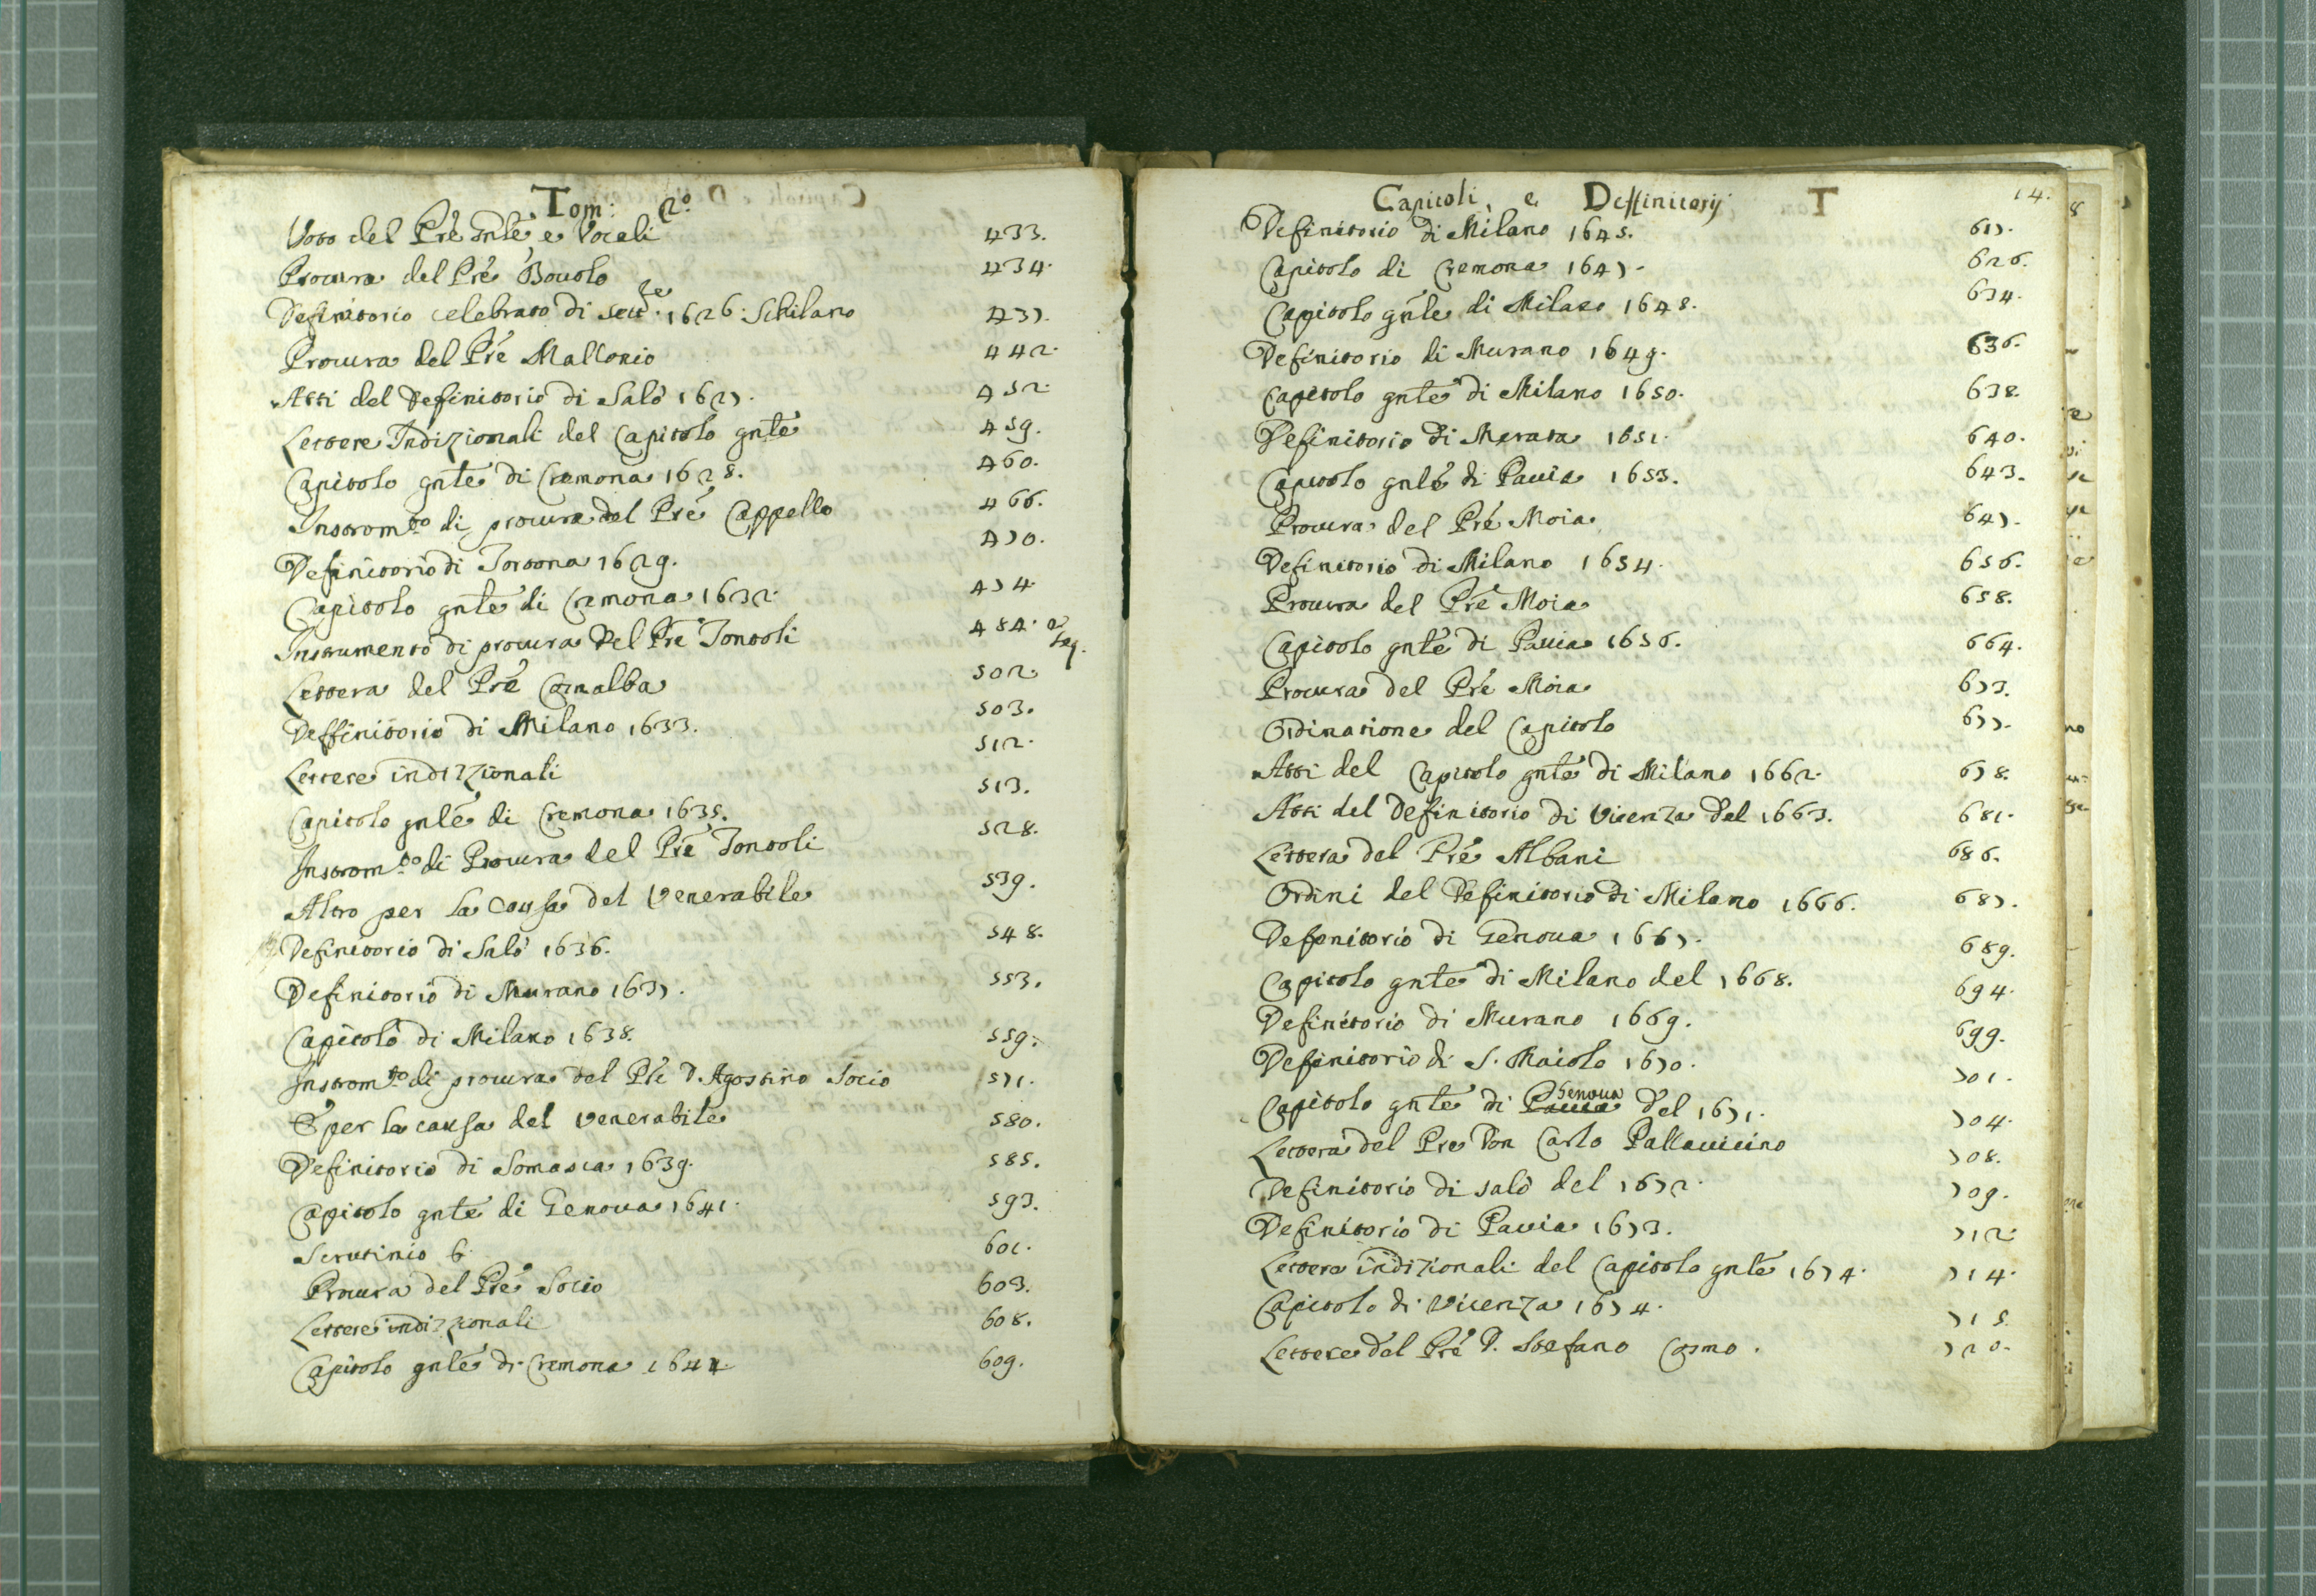 Tom: 2º
Voto del Pre Gnle, e Vocali 433.
Procura del Pre Bouolo 434.
Definitorio celebrato di 1626. 437.
Procura del Pre Mallonio 442.
Atti del Definitorio di Salò 1627. 452
Lettere Indizionali del Capitolo gnle 459.
Capitolo gnle di Cremona 1628. 460.
Instrom.to di procura del Pre Cappello 466.
Definitorio di Tortona 1629. 470.
Capitolo gnle di Cremona 1632. 474
Instrumento di procura del Pre Tontoli 484. e seq.
Lettera del Pre Comalba 502
Deffinitorio di Milano 1633. 503.
Lettere indizionali 512.
Capitolo gnle di Cremona 1635. 513.
Instrom.to di Procura del Pre Tontoli 528.
Altro per la Causa del Venerabile 539.
Definitorio di Salò 1636. 548.
Definitorio di Murano 1637. 553.
Capitolo di Milano 1638. 559.
Instrom.to di procura del Pre D. Agostino Socio 571.
E per la causa del Venerabile 580.
Definitorio di Somasca 1639. 585.
Capitolo gnle di Genoua 1641. 593.
Scrutinio 6. 601.
Procura del Pre Socio 603.
Lettere indizionali 608.
Capitolo gnle di Cremona 1644 609.
Capitoli, e Deffinitorij T 14.
Definitorio di Milano 1645. 617.
Capitolo di Cremona 1647. 626.
Capitolo gnle di Milano 1648. 634.
Definitorio di Murano 1649. 636.
Capitolo gnle di Milano 1650. 638.
Definitorio di 1651. 640.
Capitolo gnle di Pauia 1653. 643.
Procura del Pre Moia 647.
Definitorio di Milano 1654. 656.
Procura del Pre Moia 658.
Capitolo gnle di Pauia 1656. 664.
Procura del Pre Moia 673.
Ordinatione del Capitolo 677.
Atti del Capitolo gnle di Milano 1662. 678.
Atti del Definitorio di Vicenza del 1663. 681.
Lettera del Pre Albani 686.
Ordini del Definitorio di Milano 1666. 687.
Definitorio di Genoua 1667. 689.
Capitolo gnle di Milano del 1668. 694.
Definitorio di Murano 1669. 699.
Definitorio di S. Maiolo 1670. 701.
Capitolo gnle di Pauia Genoua del 1671. 704.
Lettera del Pre Don Carlo Pallauicino 708.
Definitorio di Salò del 1672. 709.
Definitorio di Pauia 1673. 712.
Lettere indizionali del Capitolo gnle 1674. 714.
Capitolo di Vicenza 1674. 715.
Lettere del Pre D. Stefano Cosmo. 720.